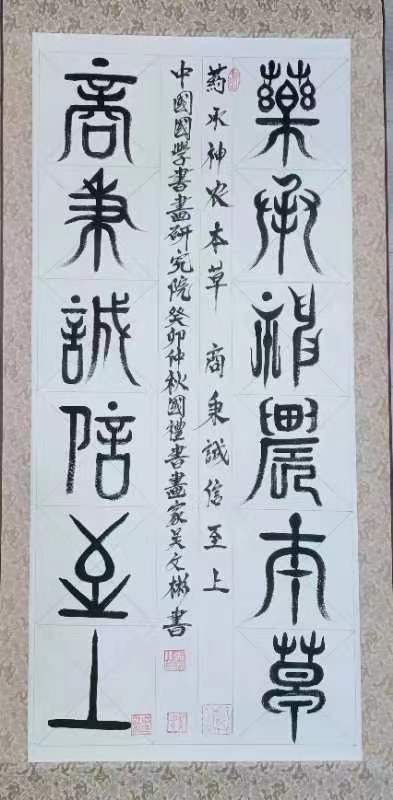 藥承神農本草
药承神农本草 商秉誠信至上
中國國學書畫研究院癸卯仲秋國禮書畫家吴文彬書
商秉誠信至上